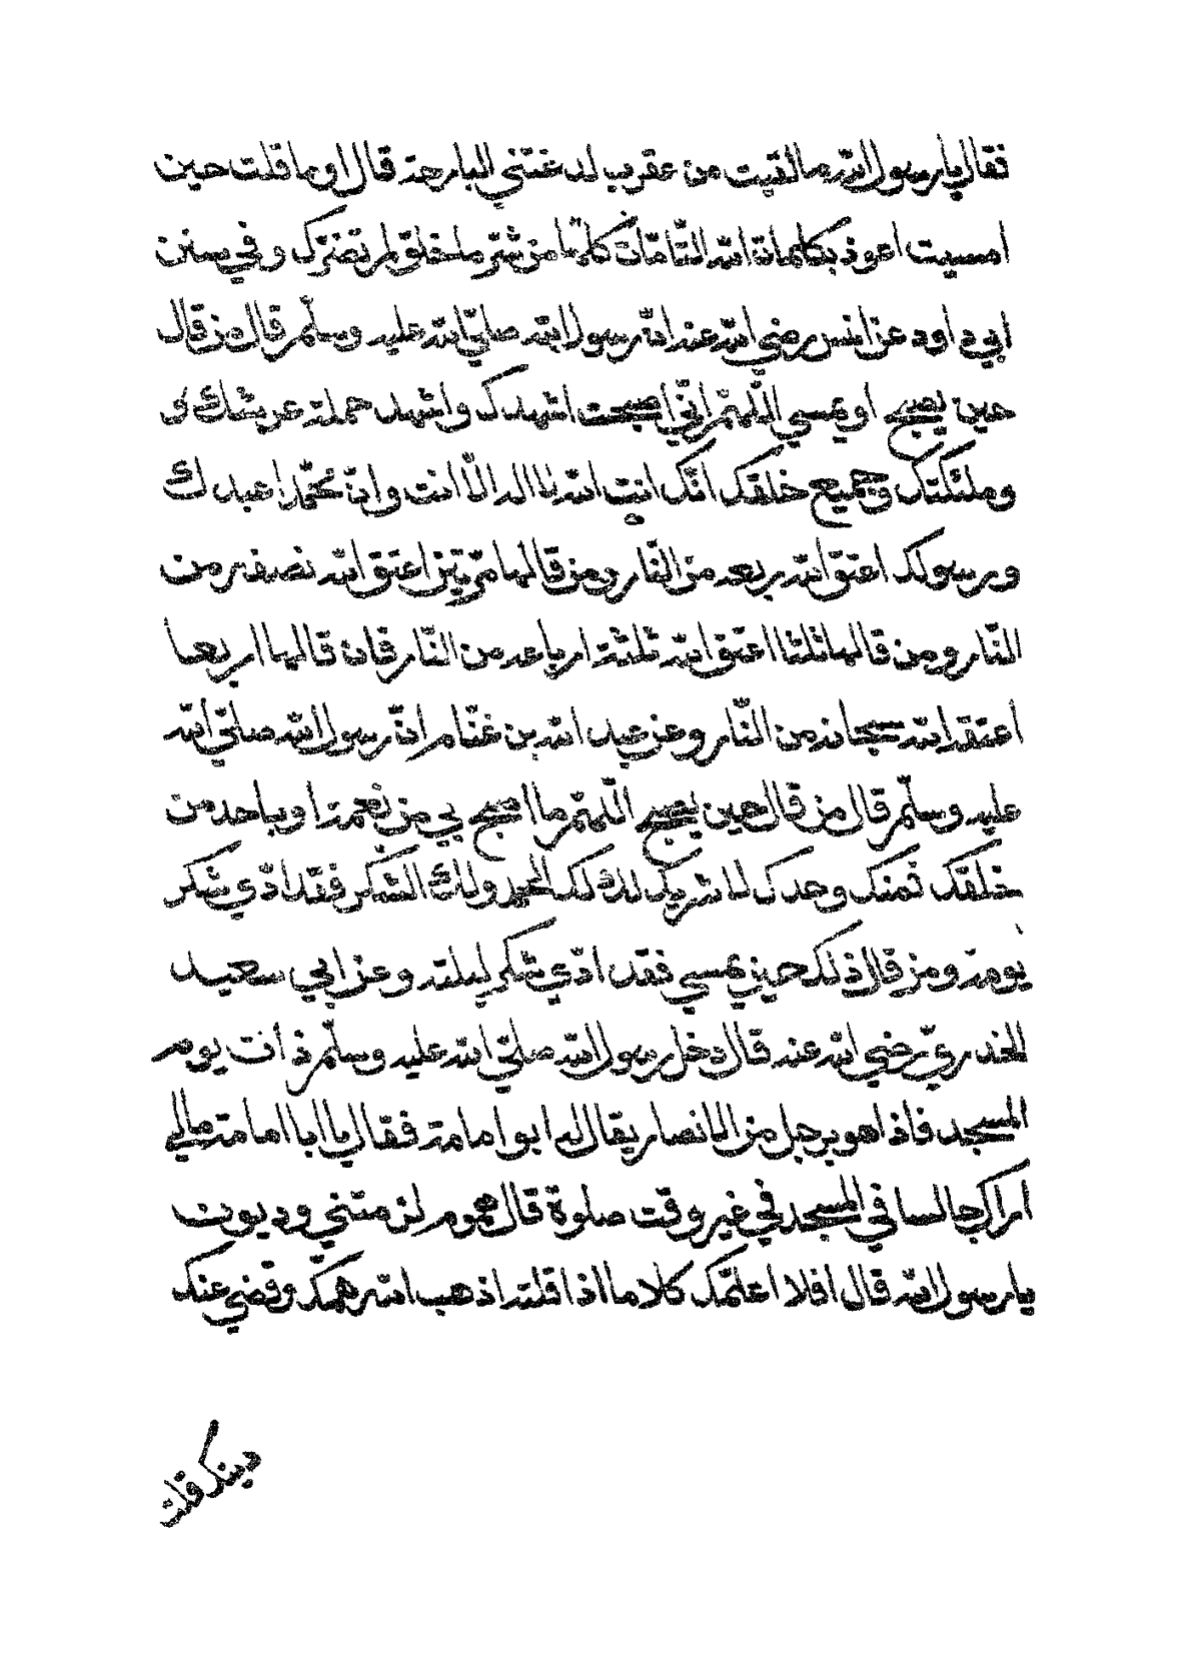 فقال يا رسول الله ما لقيت من عقرب لدغتني البارحة قال او ما قلت حين
امسيت اعوذ بكلماة الله التامّات كلّها من شرّ ما خلق لم تضرّك وفي سنن
ابي داود عن انس رضي الله عنه انّ رسول الله صلّي الله عليه وسلّم قال من قال
حين يصبح او يمسي اللّهمّ انّي اصبحت اشهدك واشهد حملة عرشك
وملئكتك وجميع خلقك انّك انت الله لا اله الّا انت وانّ محمّدا عبدك
ورسولك اعتق الله ربعه من النّار ومن قالها مرّتين اعتق الله نصفه من
النّار ومن قالها ثلثا اعتق الله ثلثة ارباعه من النّار فان قالها اربعا
اعتقه الله سبحانه من النّار وعن عبد الله بن غنّام انّ رسول الله صلّي الله
عليه وسلّم قال من قال حين يصبح اللّهمّ ما اصبح بي من نعمة او باحد من
خلقك فمنك وحدك لا شريك لك لك الحمد ولك الشكر فقد ادّي شكر
يومه ومن قال ذلك حين يمسي فقد ادّي شكر ليلته وعن ابي سعيد
الخدريّ رضي الله عنه قال دخل رسول الله صلّي الله عليه وسلّم ذات يوم
المسجد فاذا هو برجل من الانصار يقال له ابو امامة فقال يا ابا امامة مالي
اراك جالسا في المسجد في غير وقت صلوة قال هموم لزمتني وديون
يا رسول الله قال افلا اعلّمك كلاما اذا قلته اذهب الله همّك وقضي عنك
دينك قلت